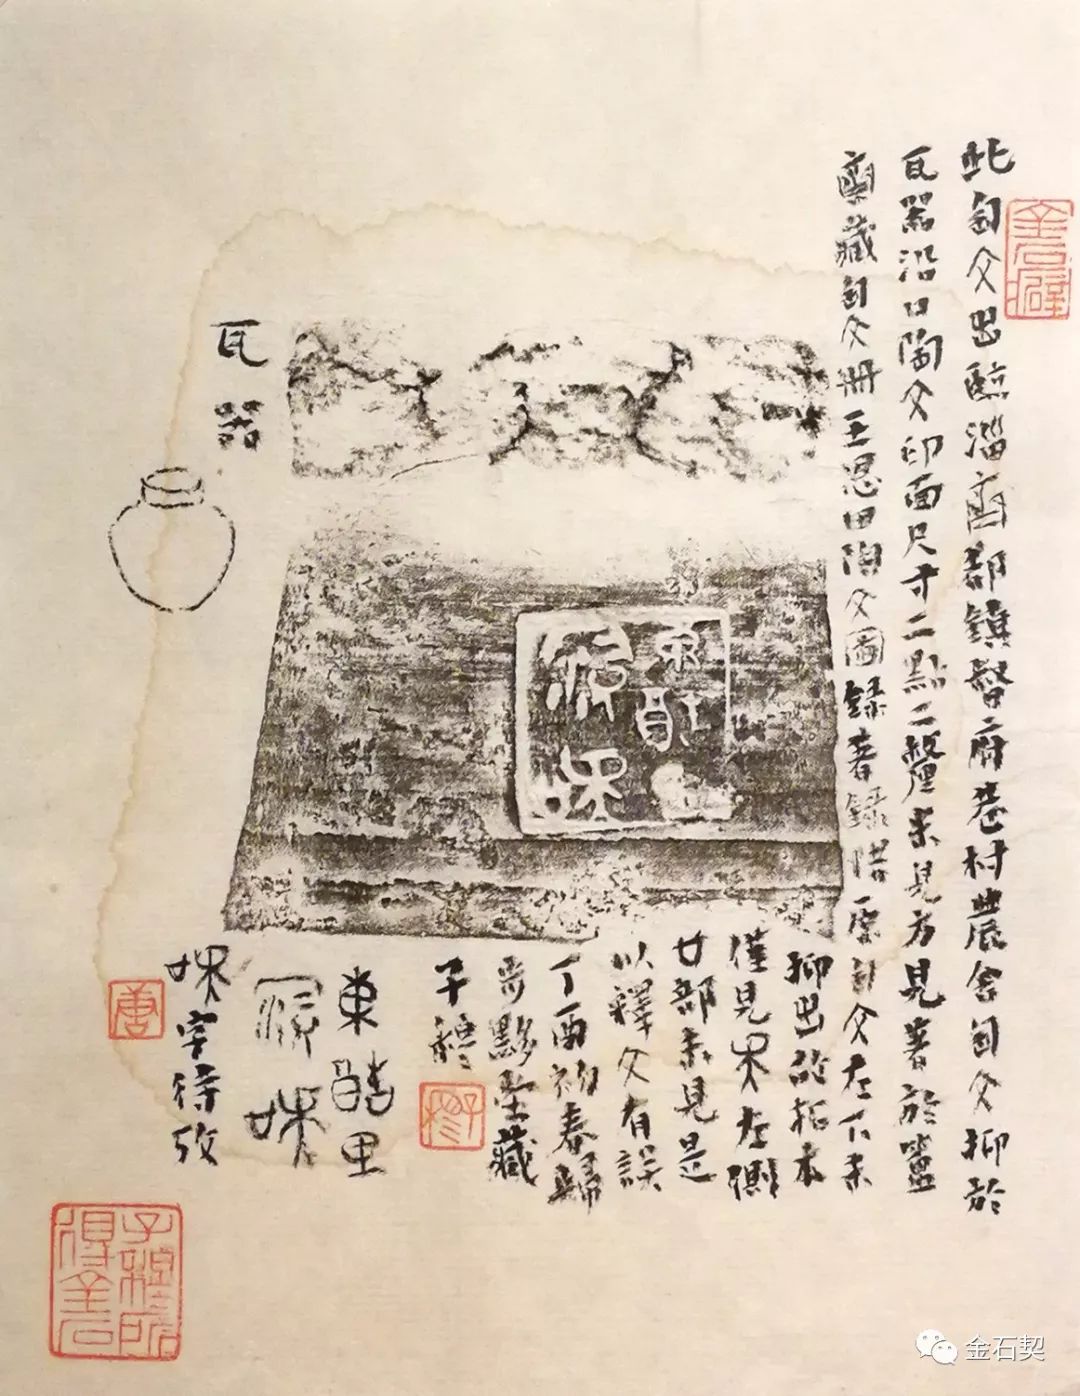 此匋文出臨淄齊都鎮督府巷村農舍匋文抑於
瓦器沿口陶文印面尺寸二點二釐未見方見著於簠
齋藏匋文冊王恩田陶文圖錄著錄惜原匋文左下未
抑出故拓本
僅見木左側
廿部未見是
以釋文有誤
丁酉初春歸
步黟堂藏
子穆
東里
字待攷
瓦器
唐
金石契